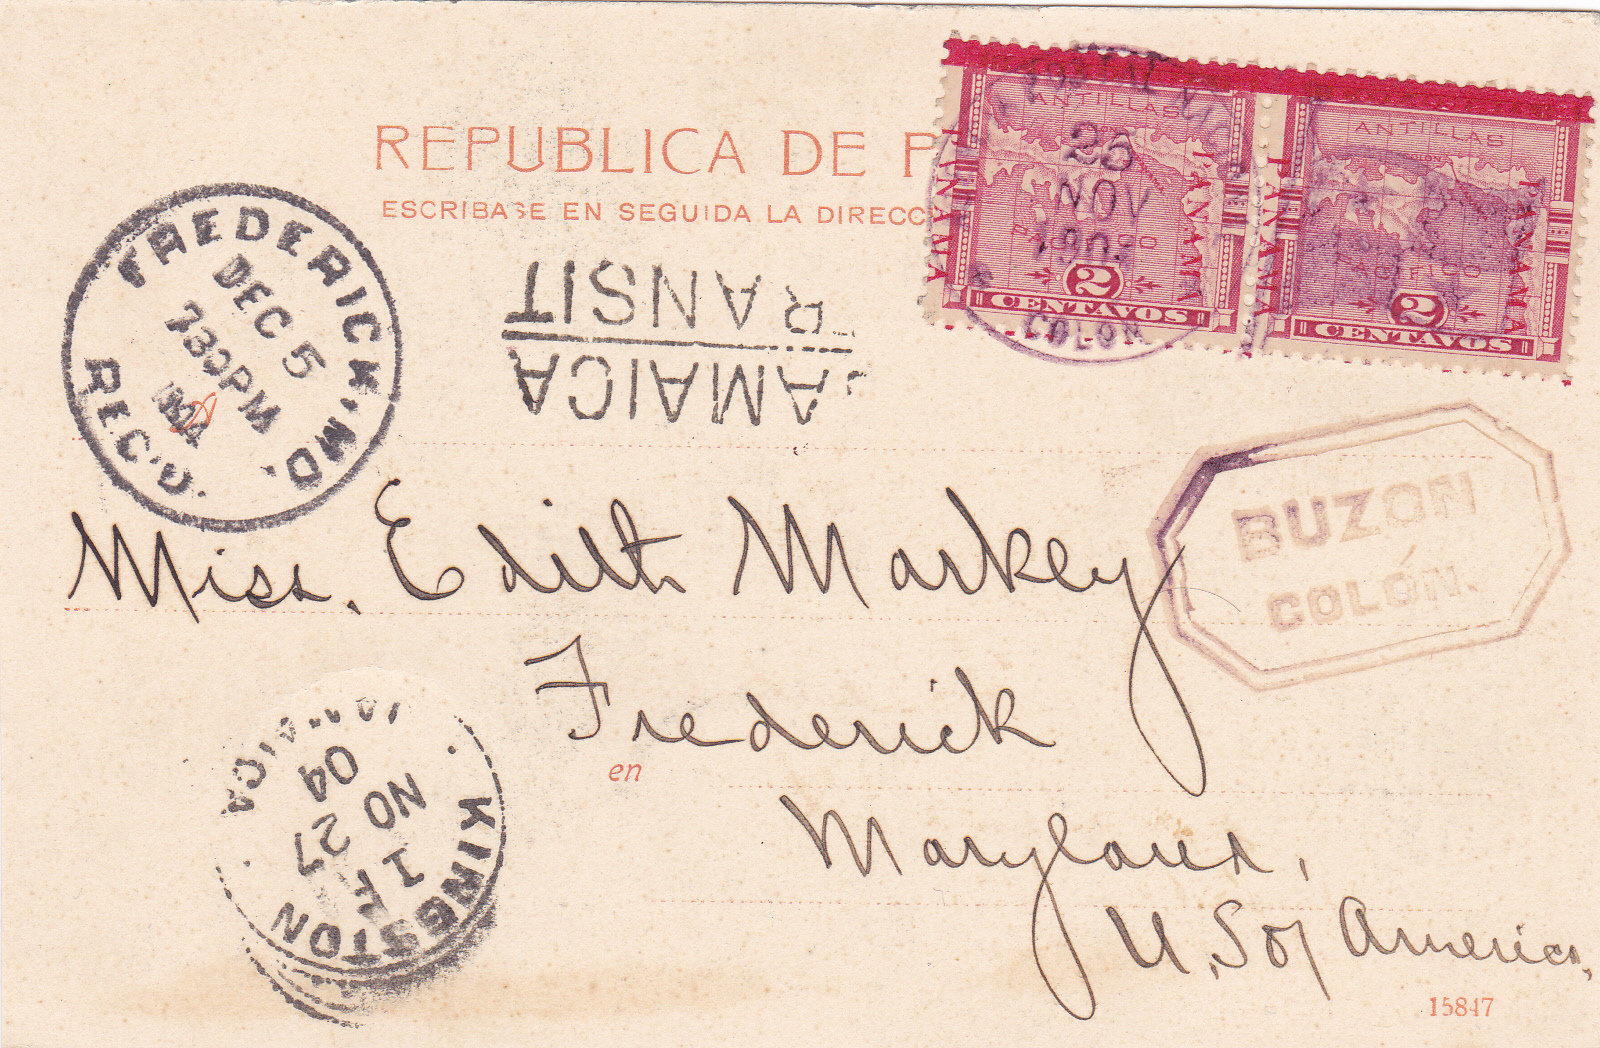 REPUBLICA DE P
ESCRIBASE EN SEGUIDA LA DIRECC
ANTILLAS
PANAMA
PANAMA
2
CENTAVOS
ANTILLAS
PANAMA
PANAMA
PACIFICO
2
CENTAVOS
NOV
COLON
FREDERICK, MD.
DEC 5
730PM
REC'D.
JAMAICA
TRANSIT
BUZON
COLÓN.
Miss. Edith Markey
Frederick
en
Maryland,
U. S of America,
KINGSTON
JAMAICA
1
NO 27
04
15847